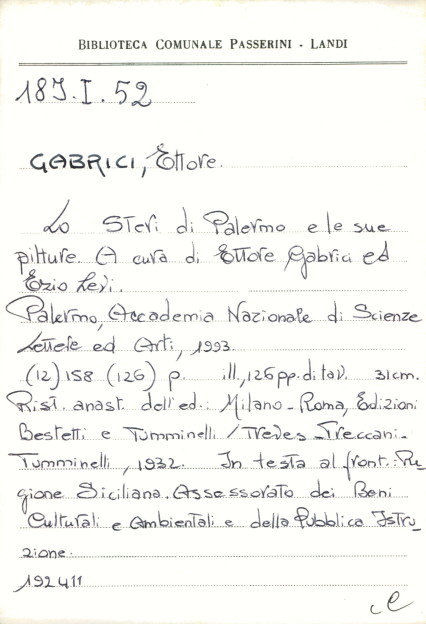 BIBLIOTECA COMUNALE PASSERINI - LANDI
18J.I.52
GABRICI, Ettore.
Lo Steri di Palermo e le sue
pitture. A cura di Ettore Gabrici ed
Ezio Levi.
Palermo, Accademia Nazionale di Scienze
Lettere ed Arti, 1993.
(12) 158 (126) p. ill., 126 pp. di tav. 31 cm.
Rist. anast. dell'ed.: Milano-Roma, Edizioni
Bestetti e Tumminelli / Treves-Treccani-
Tumminelli, 1932. In testa al front.: Re
gione Siciliana. Assessorato dei Beni
Culturali e Ambientali e della Pubblica Istru_
zione.
192411